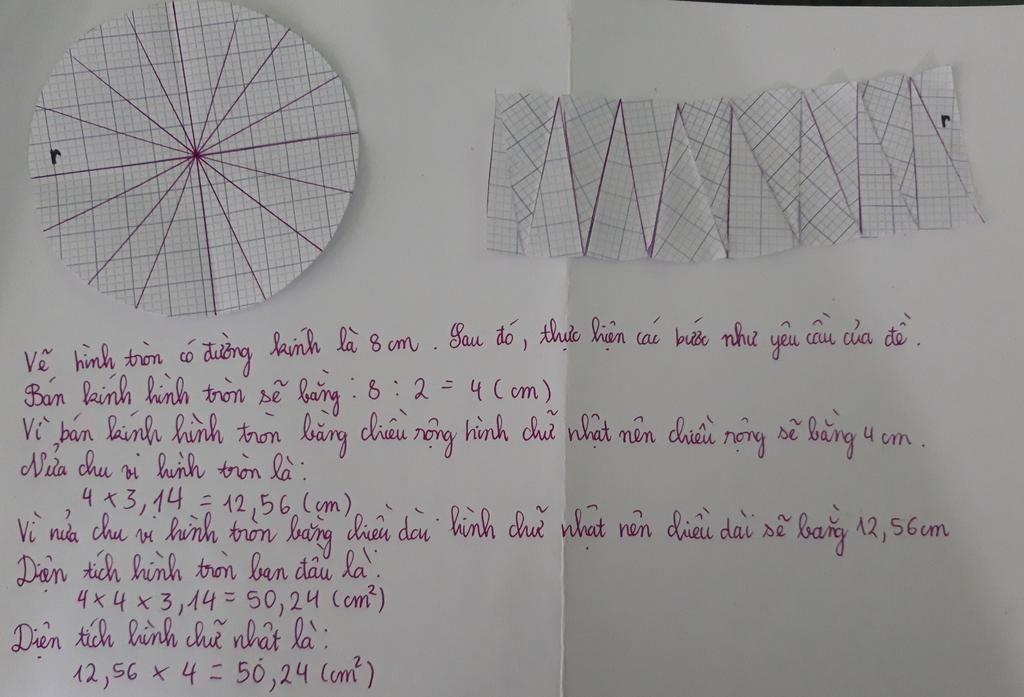 r
r
Vẽ hình tròn có đường kính là 8 cm. Sau đó, thực hiện các bước như yêu cầu của đề.
Bán kính hình tròn sẽ bằng: 8 : 2 = 4 (cm)
Vì bán kính hình tròn bằng chiều rộng hình chữ nhật nên chiều rộng sẽ bằng 4 cm.
Nửa chu vi hình tròn là:
4 x 3,14 = 12,56 (cm)
Vì nửa chu vi hình tròn bằng chiều dài hình chữ nhật nên chiều dài sẽ bằng 12,56cm
Diện tích hình tròn ban đầu là:
4 x 4 x 3,14 = 50,24 (cm²)
Diện tích hình chữ nhật là:
12,56 x 4 = 50,24 (cm²)